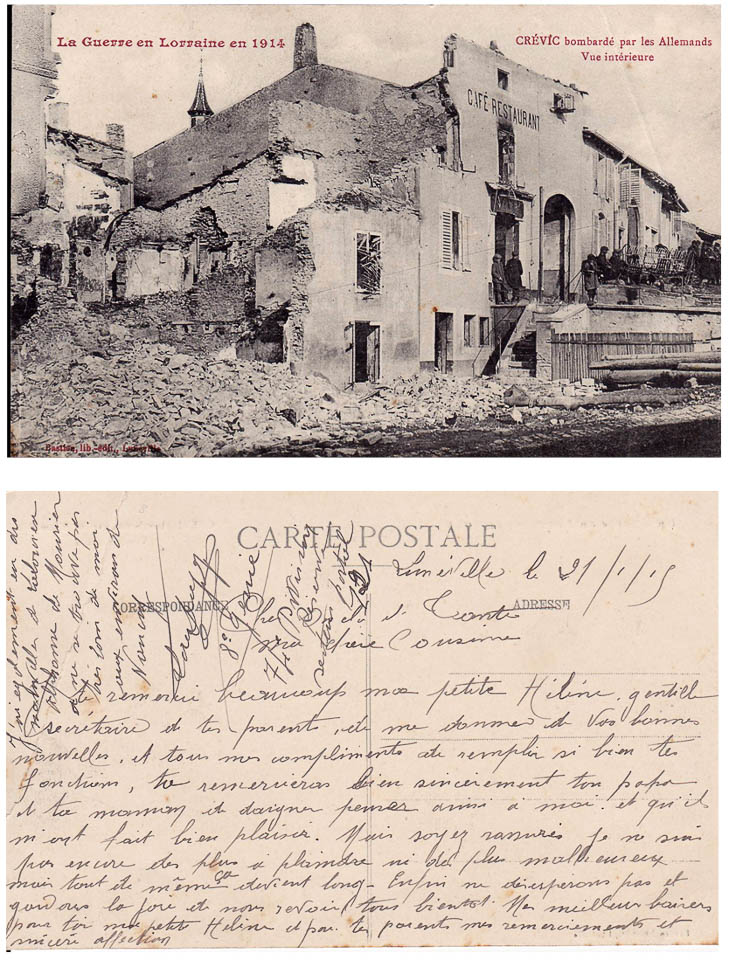 La Guerre en Lorraine en 1914
CRÉVIC bombardé par les Allemands
Vue intérieure
CAFÉ RESTAURANT
Bastien, lib.-édit., Lunéville
CARTE POSTALE
CORRESPONDANCE
ADRESSE
Lunéville le 21/1/15
Cher et Tante
Ma petite Cousine
Je remercie beaucoup ma petite Hélène, gentille
secrétaire de tes parents, de me donner de vos bonnes
nouvelles, et tous mes compliments de remplir si bien tes
fonctions, tu remercieras bien sincèrement ton papa
et ta maman de daigner penser ainsi à moi et qu'ils
m'ont fait bien plaisir. Mais soyez rassurés je ne suis
pas encore des plus à plaindre ni des plus malheureux
mais tout de même ça devient long - Enfin ne désespérons pas et
gardons la foie de nous revoir tous bientôt. Mes meilleurs baisers
pour toi ma petite Hélène et pour tes parents mes remerciements et
sincère affection
J'ai également eu des
nouvelles de
Alphonse de
qui se trouve pas
très loin de moi
aux environs de
8e Génie
secteur postal